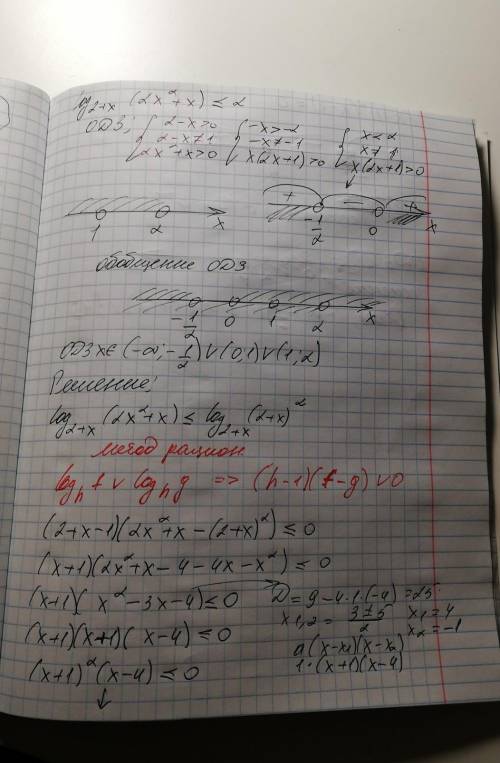 lg₂₊ₓ (2x²+x) ≤ 2
ОДЗ; { 2-x>0 { -x>-2 { x<2
2-x≠1 -x≠-1 x≠1
2x²+x>0 x(2x+1)>0 x(2x+1)>0
+ - +
1 2 x -1/2 0 x
обобщение ОДЗ
-1/2 0 1 2 x
ОДЗ x∈ (-∞;-1/2)∨(0,1)∨(1;2)
Решение;
log₂₊ₓ (2x²+x) ≤ log₂₊ₓ (2+x)²
метод рацион
logₕ f ∨ logₕ g => (h-1)(f-g) ∨ 0
(2+x-1)(2x²+x-(2+x)²) ≤ 0
(x+1)(2x²+x-4-4x-x²) ≤ 0
(x+1)(x²-3x-4) ≤ 0 D=9-4·1·(-4)=25
x₁,₂ = (3±5)/2 x₁=4
x₂=-1
(x+1)(x+1)(x-4) ≤ 0 a(x-x₁)(x-x₂)
1·(x+1)(x-4)
(x+1)²(x-4) ≤ 0